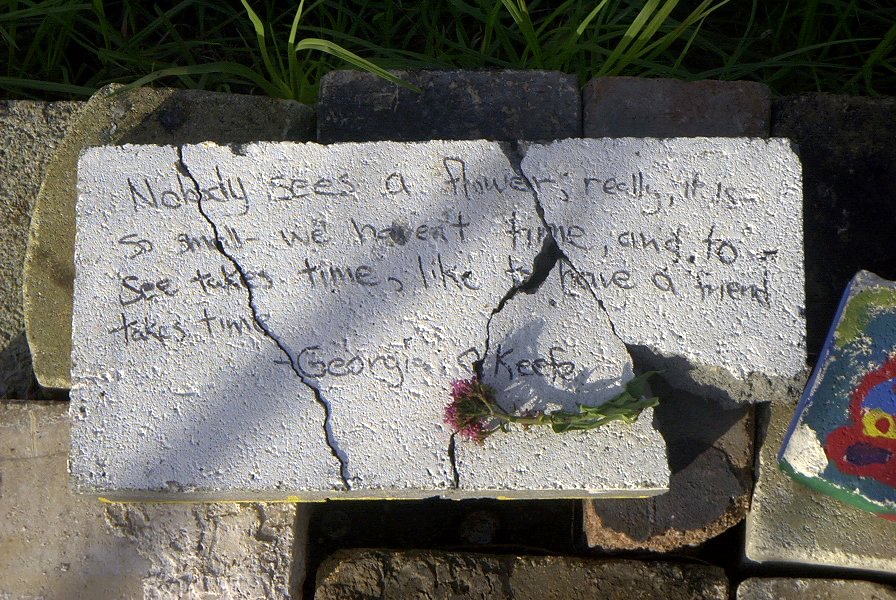 Nobody sees a flower; really, it is
so small - we haven't time, and to -
see takes time, like to have a friend
takes time
- Georgia O'Keefe